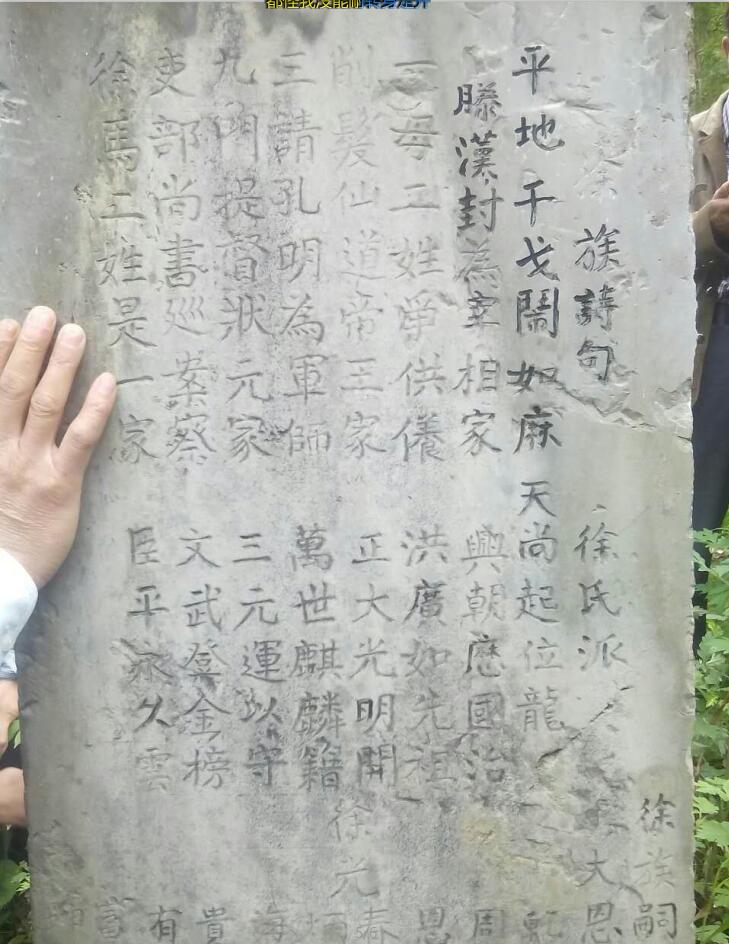 徐族詩句
平地干戈鬧如麻
滕漢封為宰相家
一母二姓爭供儀
削髮仙道帝王家
三請孔明為軍師
九門提督狀元家
吏部尚書巡案察
徐馬二姓是一家
徐氏派
天尚起位龍
興朝應國治
洪廣如先祖
正大光明開
萬世麒麟籍
三元運以守
文武登金榜
臣平永久雲
徐族嗣
大恩
周
恩
徐光春
海
貴
有
富